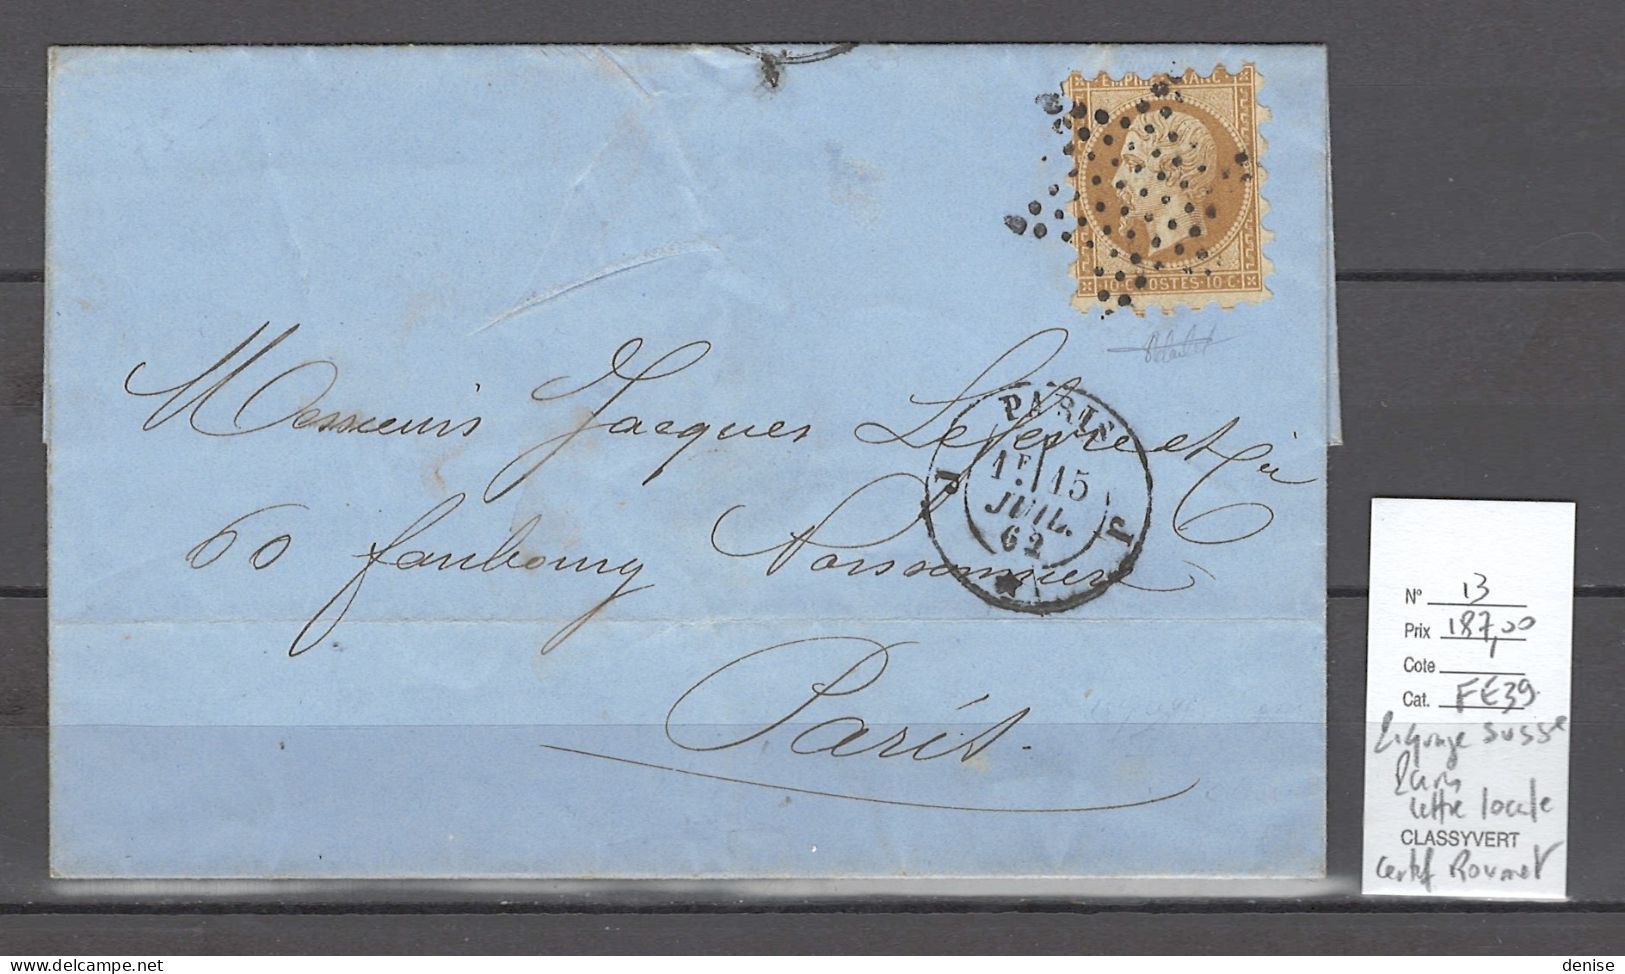 EMPIRE FRANC
10·C·POSTES·10·C·
Messieurs Jacques Lefevre et Cie
60 faubourg Poissonniere
Paris
PARIS
1E 15
JUIL.
62
J
N° 13
Prix 187,00
Cote
Cat. FE39
Piquage susse
Paris
lettre locale
CLASSYVERT
certif Roumet
www.delcampe.net
denise